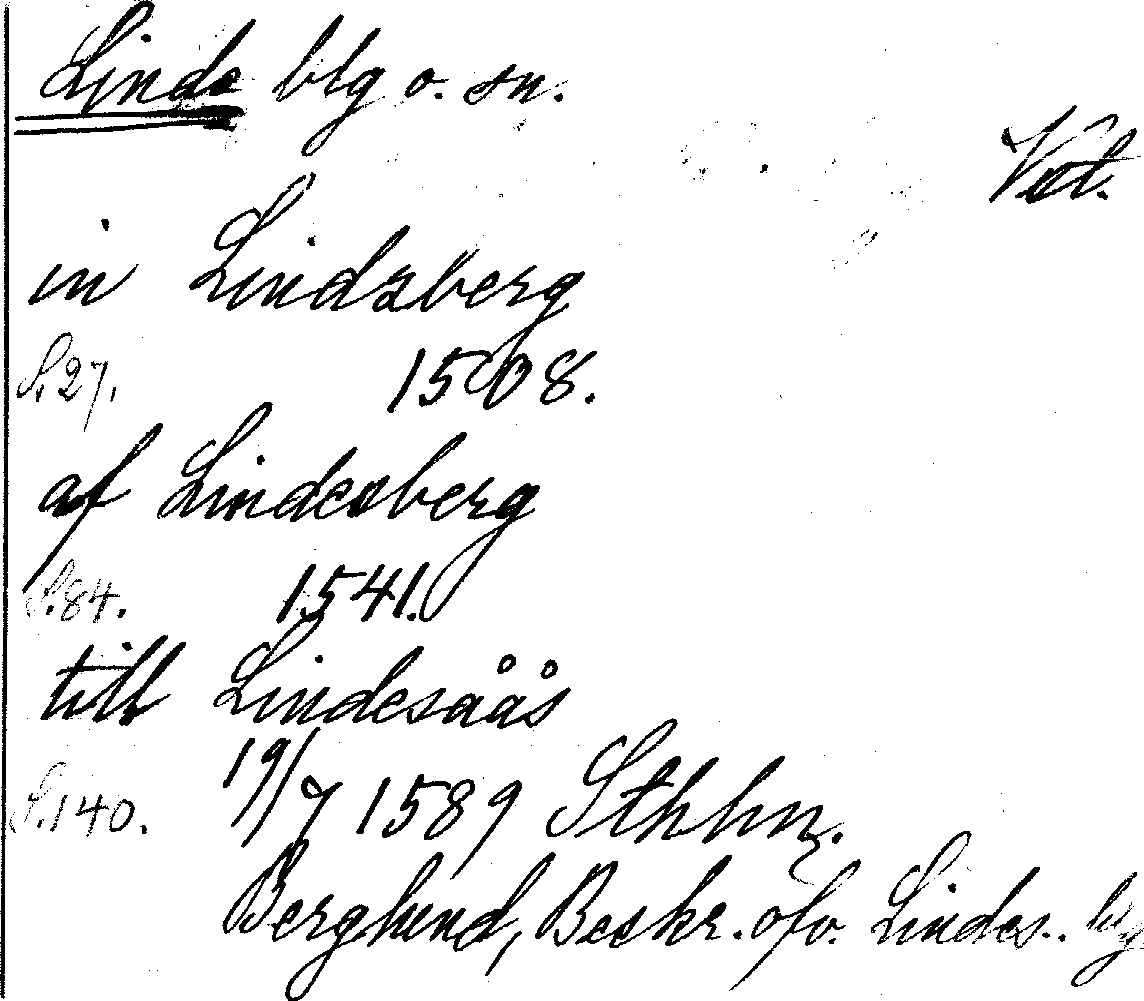 Linde blg o. sn.
Vst.
in Lindzberg
S.27. 1508.
af Lindesberg
S.84. 1541.
till Lindesåås
S.140. 19/7 1589 Sthhm.
Berglund, Beskr. öfv. Lindes.. blg